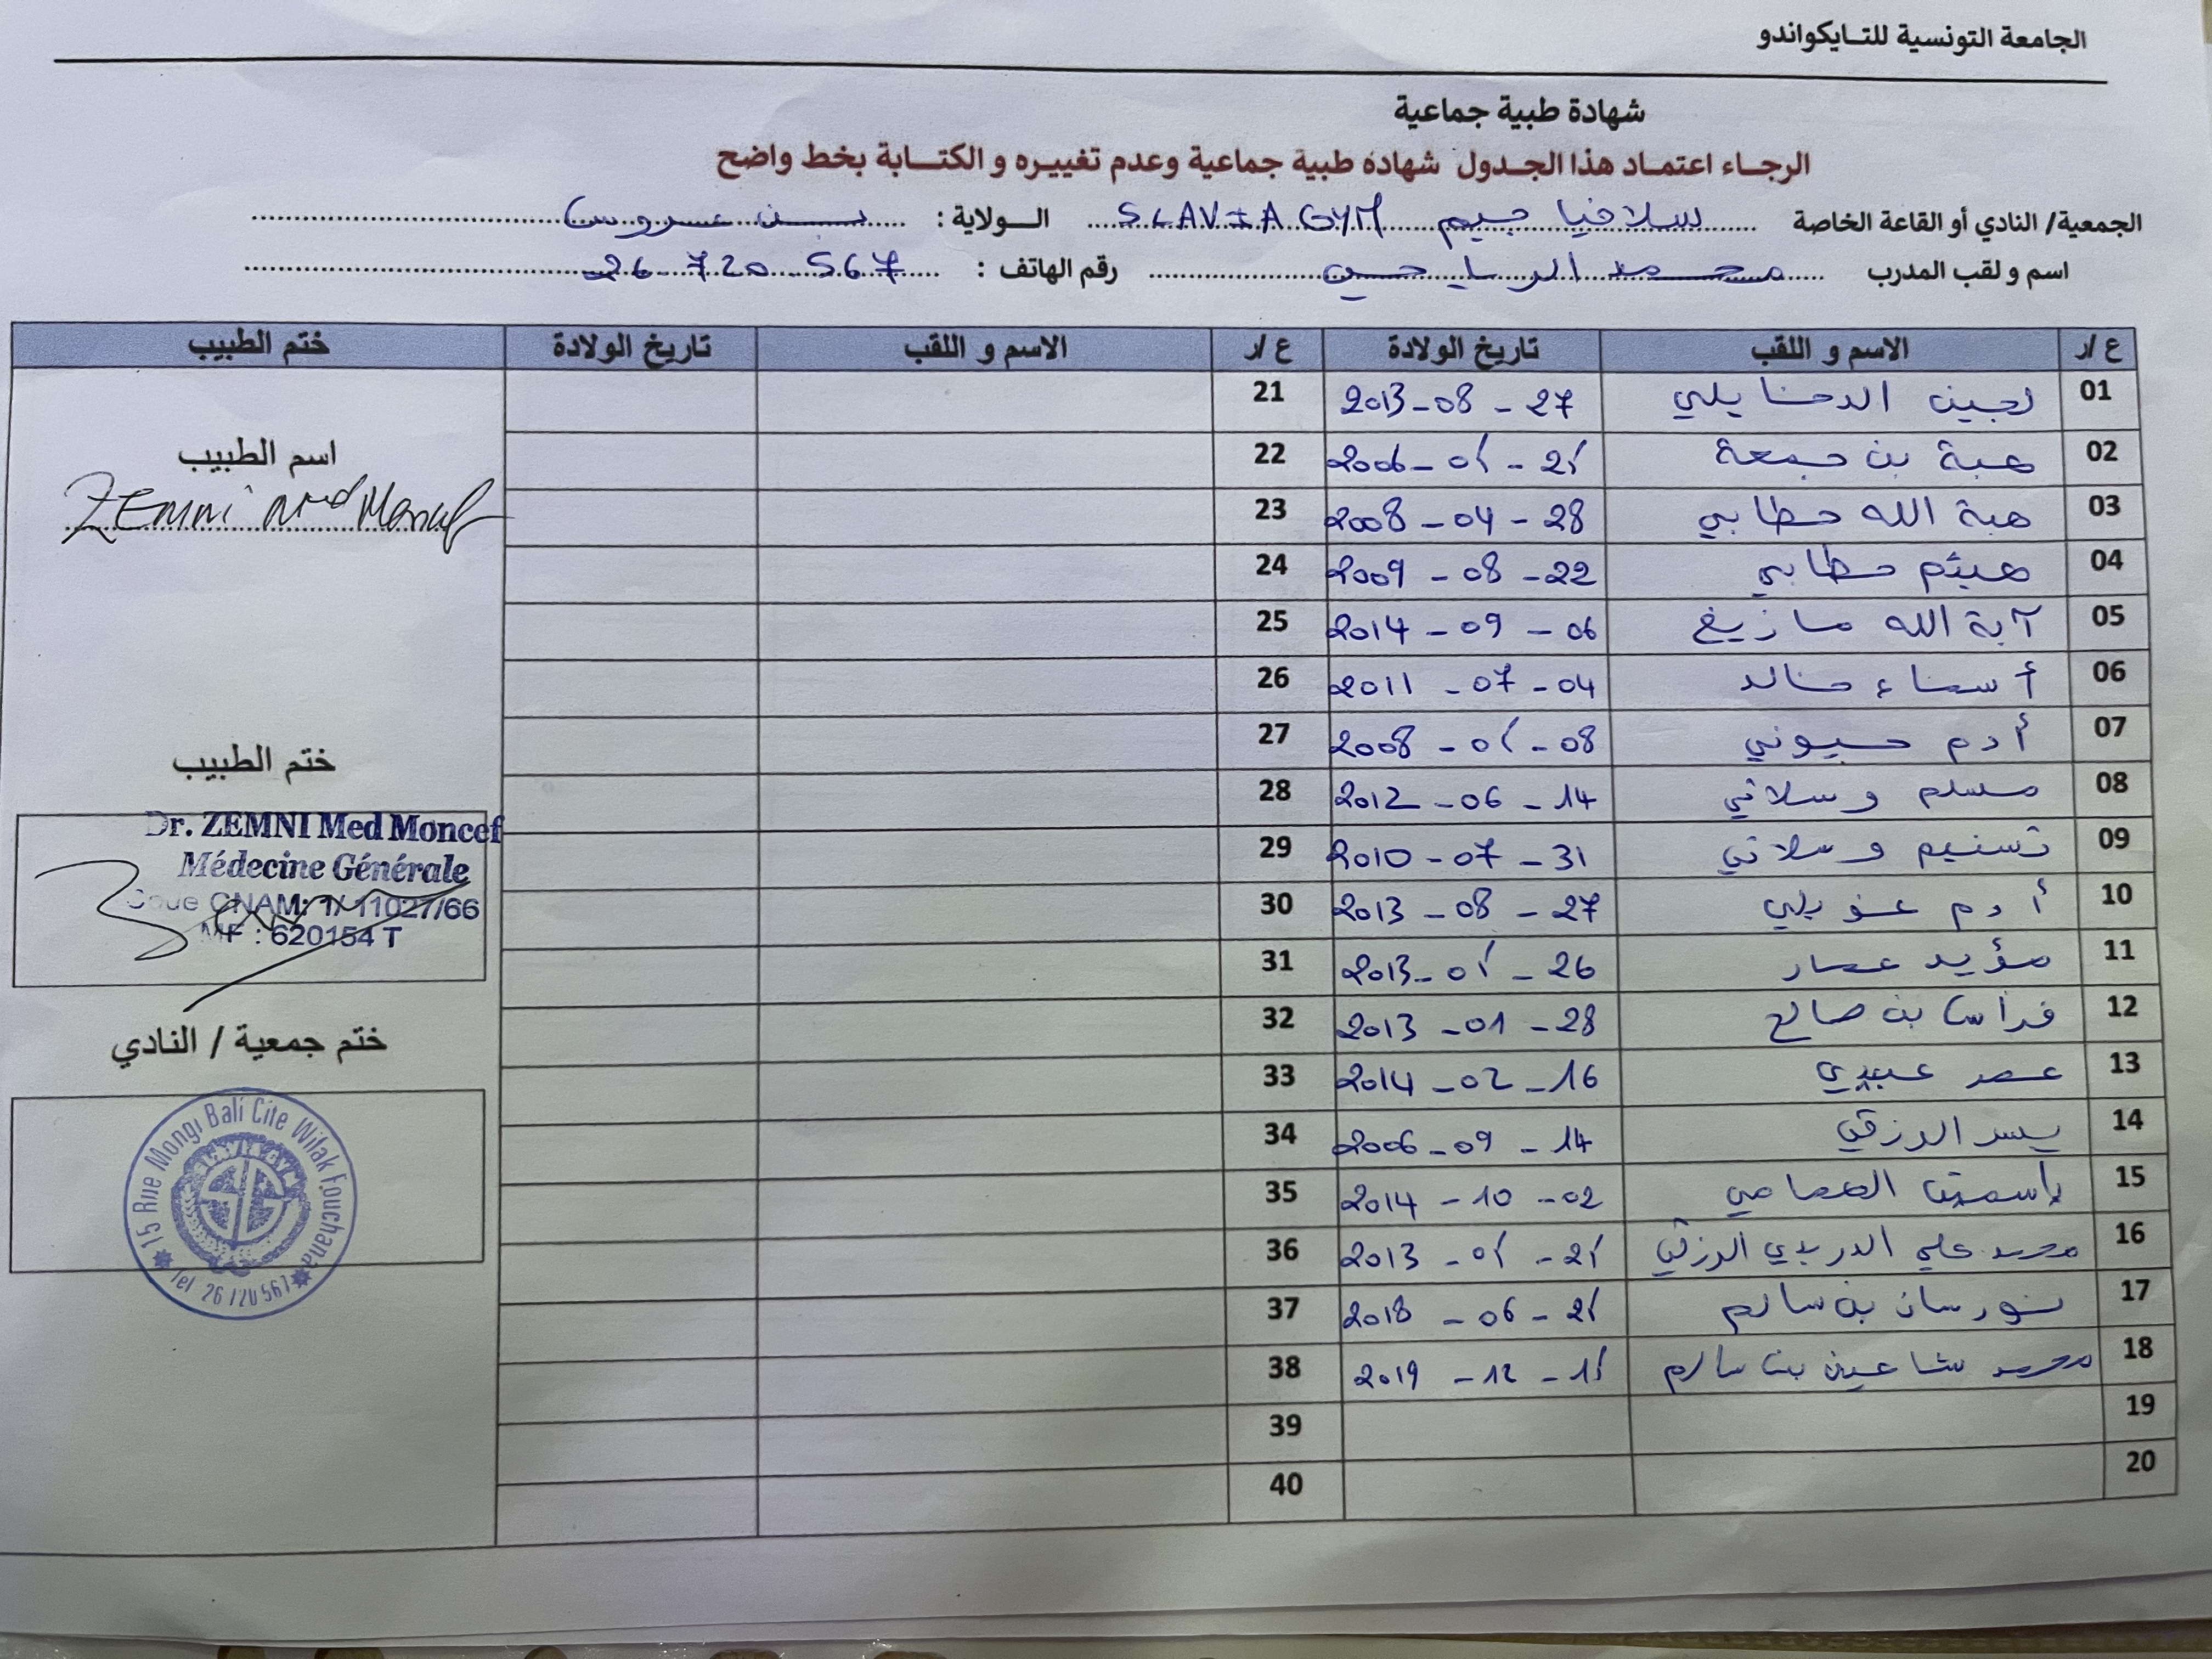 الجامعة التونسية للتايكواندو
شهادة طبية جماعية
الرجاء اعتماد هذا الجدول شهادة طبية جماعية وعدم تغييره و الكتابة بخط واضح
الجمعية/ النادي أو القاعة الخاصة سلافيا جيم SLAVIA GYM الولاية : بن عروس
اسم و لقب المدرب محمد الرياحين رقم الهاتف : 26 720 567
ع /ر الاسم و اللقب تاريخ الولادة ع /ر الاسم و اللقب تاريخ الولادة ختم الطبيب
01 لجين الدخايلي 2013-08-27 21
02 هبة بن جمعة 2006-01-21 22
03 هبة الله حطابي 2008-04-28 23
04 هيثم حطابي 2009-08-22 24
05 آية الله مازيغ 2014-09-06 25
06 أسماء خالد 2011-07-04 26
07 أدم حيوني 2008-01-08 27
08 مسلم وسلاتي 2012-06-14 28
09 تسنيم وسلاتي 2010-07-31 29
10 أدم غويلي 2013-08-27 30
11 مؤيد عمار 2013-01-26 31
12 فراس بن صالح 2013-01-28 32
13 عمر عبيدي 2014-02-16 33
14 يسر الرزقي 2006-09-14 34
15 ياسمين الهمامي 2014-10-02 35
16 محمد علي الدريدي الرزقي 2013-01-21 36
17 نورسان بن سالم 2018-06-21 37
18 محمد شاهين بن سالم 2019-12-11 38
19 39
20 40
اسم الطبيب
ZEmni Med Moncef
ختم الطبيب
Dr. ZEMNI Med Moncef
Médecine Générale
Code CNAM: 1/ 11027/66
MF : 620154 T
ختم جمعية / النادي
15 Rue Mongi Bali Cite Wifak Fouchana
Tel 26 720 567